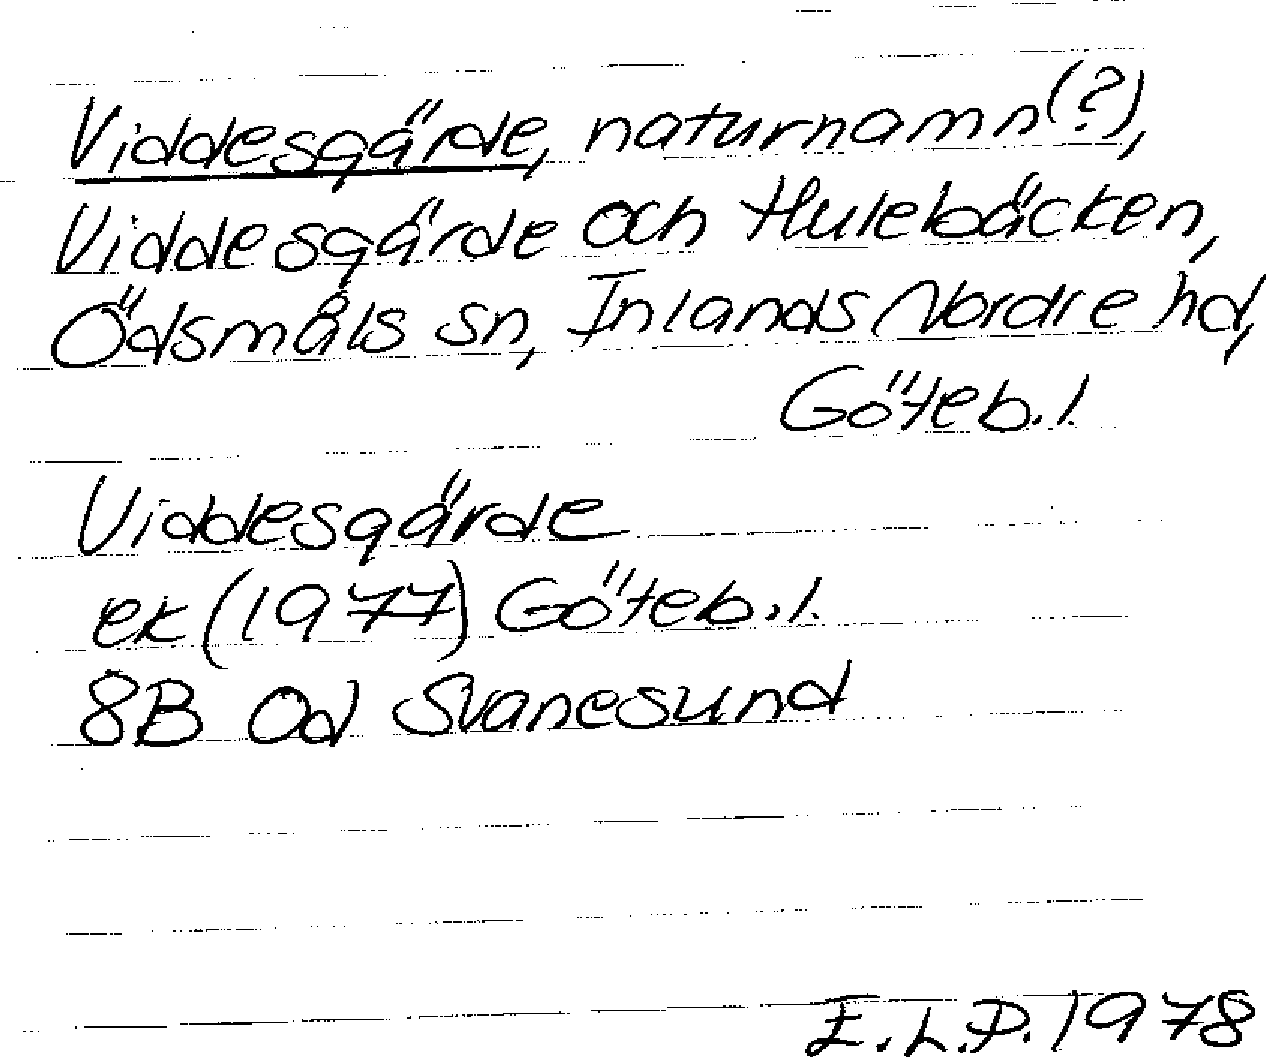 Viddesgärde, naturnamn(?),
Viddesgärde och Hulebäcken,
Ödsmåls sn, Inlands Nordre hd,
Göteb.l.
Viddesgärde
ek(1977) Göteb.l.
8B Od Svanesund
E.L.P. 1978